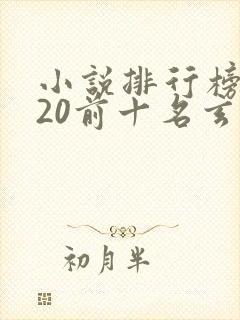 小説排行榜
20前十名玄
初月半